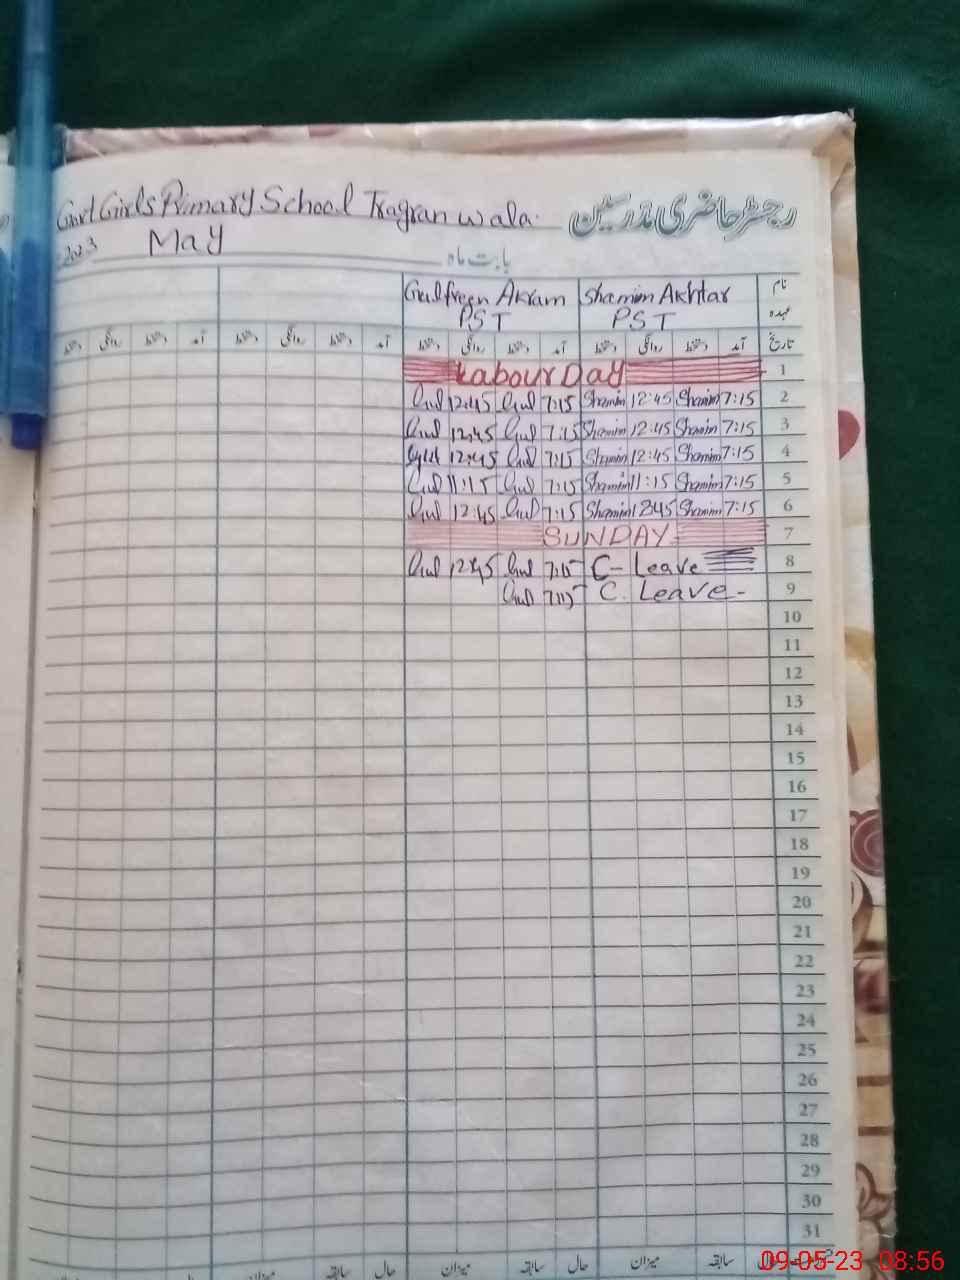 Govt Girls Primary School Tragran wala.
رجسٹر حاضری مدرسین
2023 May بابت ماہ
Gulfreen Akram Shamim Akhtar نام
PST PST عہدہ
دستخط روانگی دستخط آمد دستخط روانگی دستخط آمد دستخط روانگی دستخط آمد دستخط روانگی دستخط آمد تاریخ
Labour Day 1
Gul 12:45 Gul 7:15 Shamim 12:45 Shamim 7:15 2
Gul 12:45 Gul 7:15 Shamim 12:45 Shamim 7:15 3
12:45 Gul 7:15 Shamim 12:45 Shamim 7:15 4
Gul 11:15 Gul 7:15 Shamim 11:15 Shamim 7:15 5
Gul 12:45 Gul 7:15 Shamim 1245 Shamim 7:15 6
SUNDAY 7
Gul 12:45 Gul 7:15 C- Leave 8
Gul 7:15 C. Leave- 9
10
11
12
13
14
15
16
17
18
19
20
21
22
23
24
25
26
27
28
29
30
31
میزان سابقہ حال میزان سابقہ حال میزان سابقہ
09-05-23 08:56